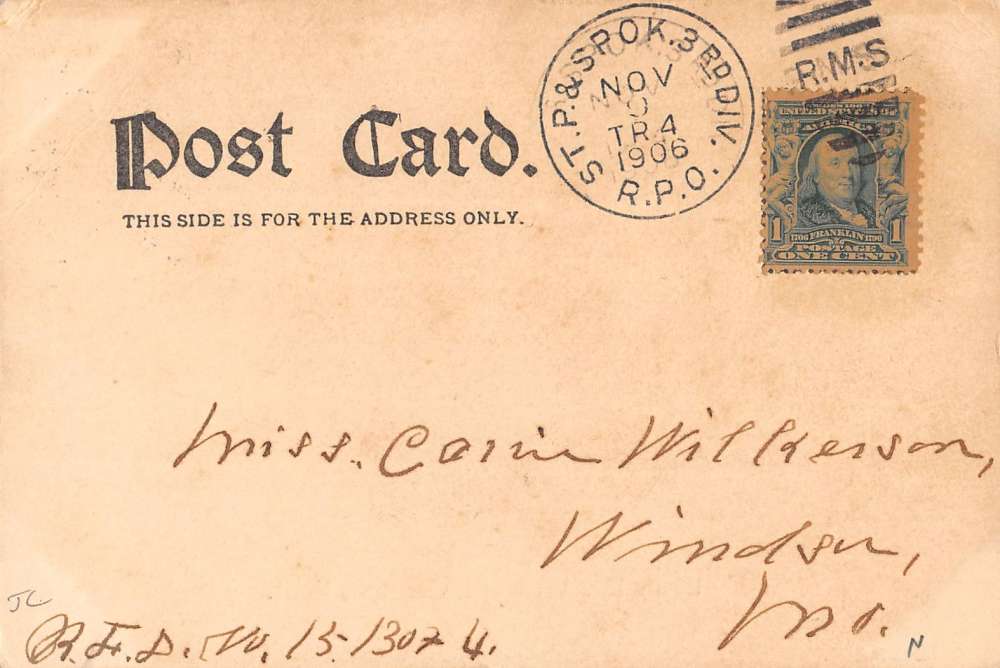 Post Card.
THIS SIDE IS FOR THE ADDRESS ONLY.
ST.P. & SPOK. 3RD DIV.
NOV
TR.4
1906
R.P.O.
R.M.S
UNITED STATES OF
AMERICA
1706 FRANKLIN 1790
1 1
POSTAGE
ONE CENT
Miss. Carrie Wilkerson,
Windsor,
Mo.
R.F.D. No. 15. Box 4.
JC
N